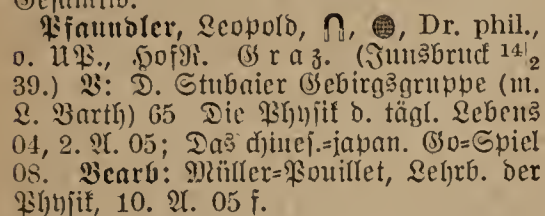 Pfaundler, Leopold, Dr. phil.,
o. UP., HofR. Graz. (Innsbruck 14|2
39.) V: D. Stubaier Gebirgsgruppe (m.
L. Barth) 65 Die Physik d. tägl. Lebens
04, 2. A. 05; Das chines.=japan. Go=Spiel
08. Bearb: Müller=Pouillet, Lehrb. der
Physik, 10. A. 05 f.